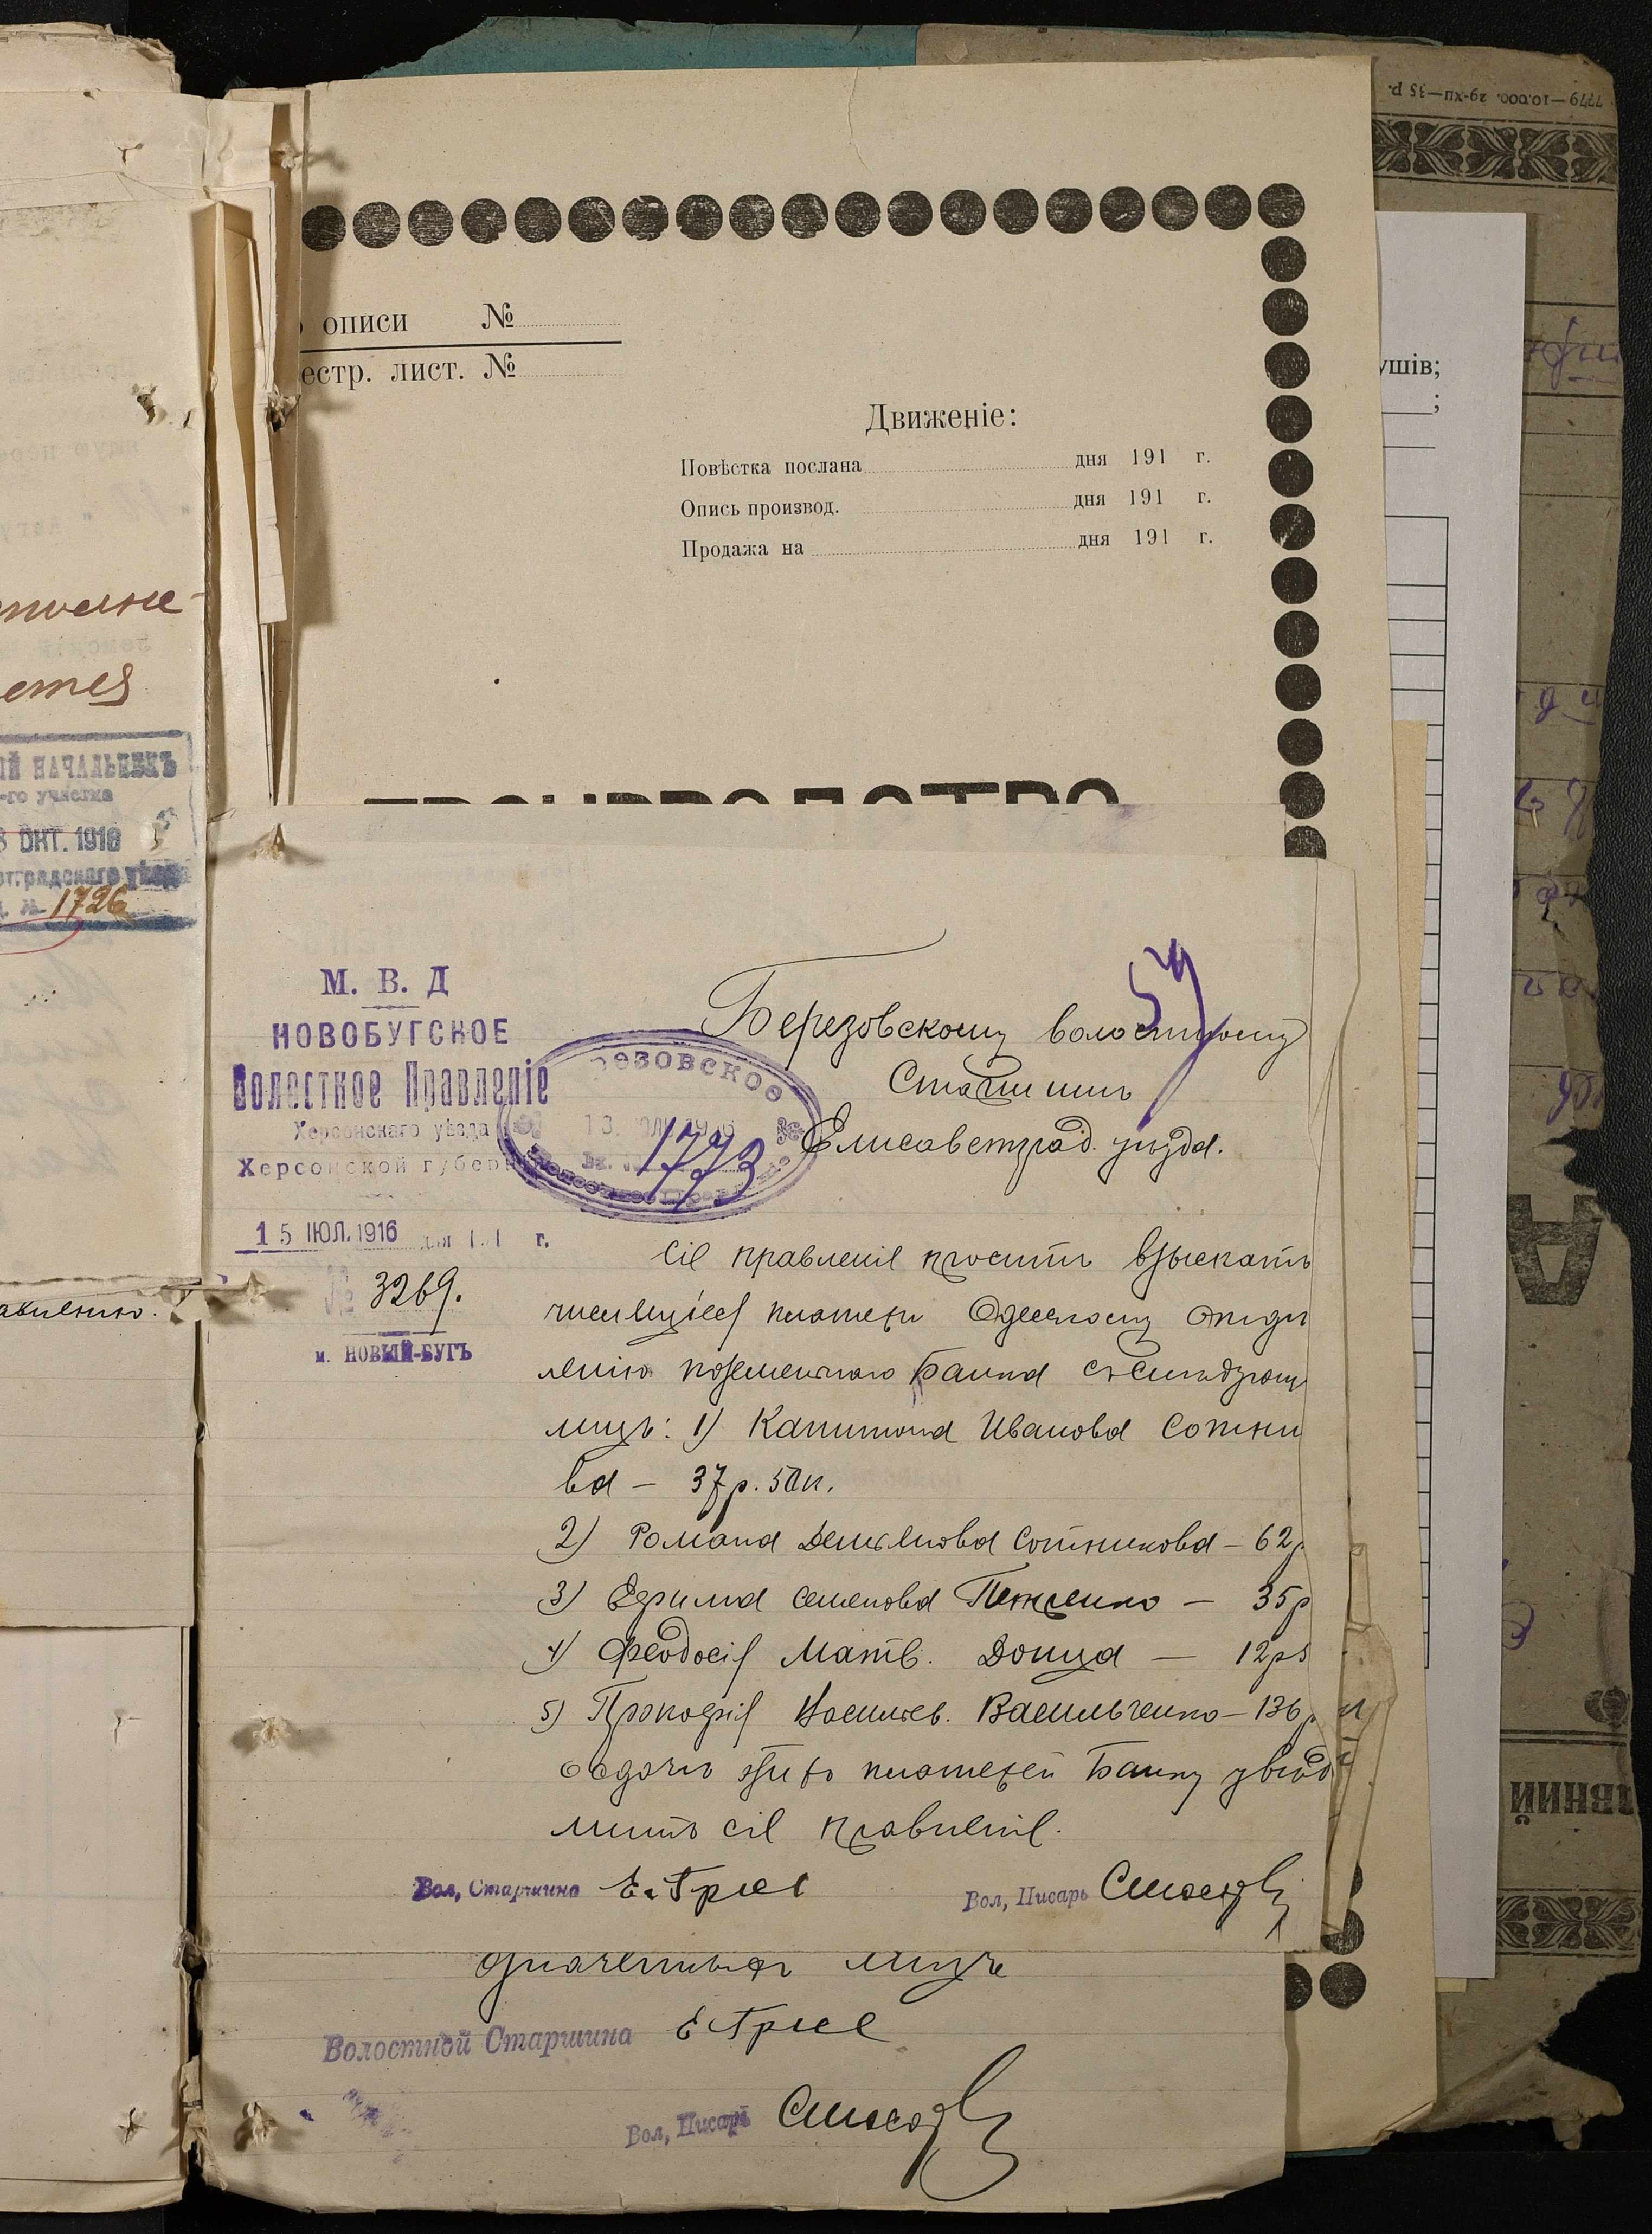 7779—10.000. 29-XII—35 р.
описи №
естр. лист. №
Движеніе:
Повѣстка послана дня 191 г.
Опись производ. дня 191 г.
Продажа на дня 191 г.
ушів;
;
ПРОИЗВОДСТВО
етея
ІЙ НАЧАЛЬНИКЪ
-го участка
ОКТ. 1916
1726
54
М. В. Д
НОВОБУГСКОЕ
Волостное Правленіе
Херсонскаго уѣзда
Херсонской губерн
15 ІЮЛ. 1916 дня 191 г.
№ 3269.
м. НОВЫЙ-БУГЪ
резовское
1773
Березовскому волостному
Старшинѣ
Елисаветград. уѣзда.
Сіе правленіе проситъ взыскать
числящіеся платежи Одесскому отдѣ
ленію поземельнаго Банка съ слѣдующ
лицъ: 1) Капитона Иванова Сотни
ва — 37 р. 50 к.
2) Романа Демьянова Сотникова — 62 р
3) Ефима Семенова — 35 р
4) Феодосія Матв. Донца — 12 р
5) Прокофія Васильев. Васильченко — 136 р
о сдачѣ этихъ платежей Банку увѣдо
мить сіе правленіе.
Вол, Старшина
Вол, Писарь
означенныхъ лицъ
Волостной Старшина
Вол, Писарь
авленію.